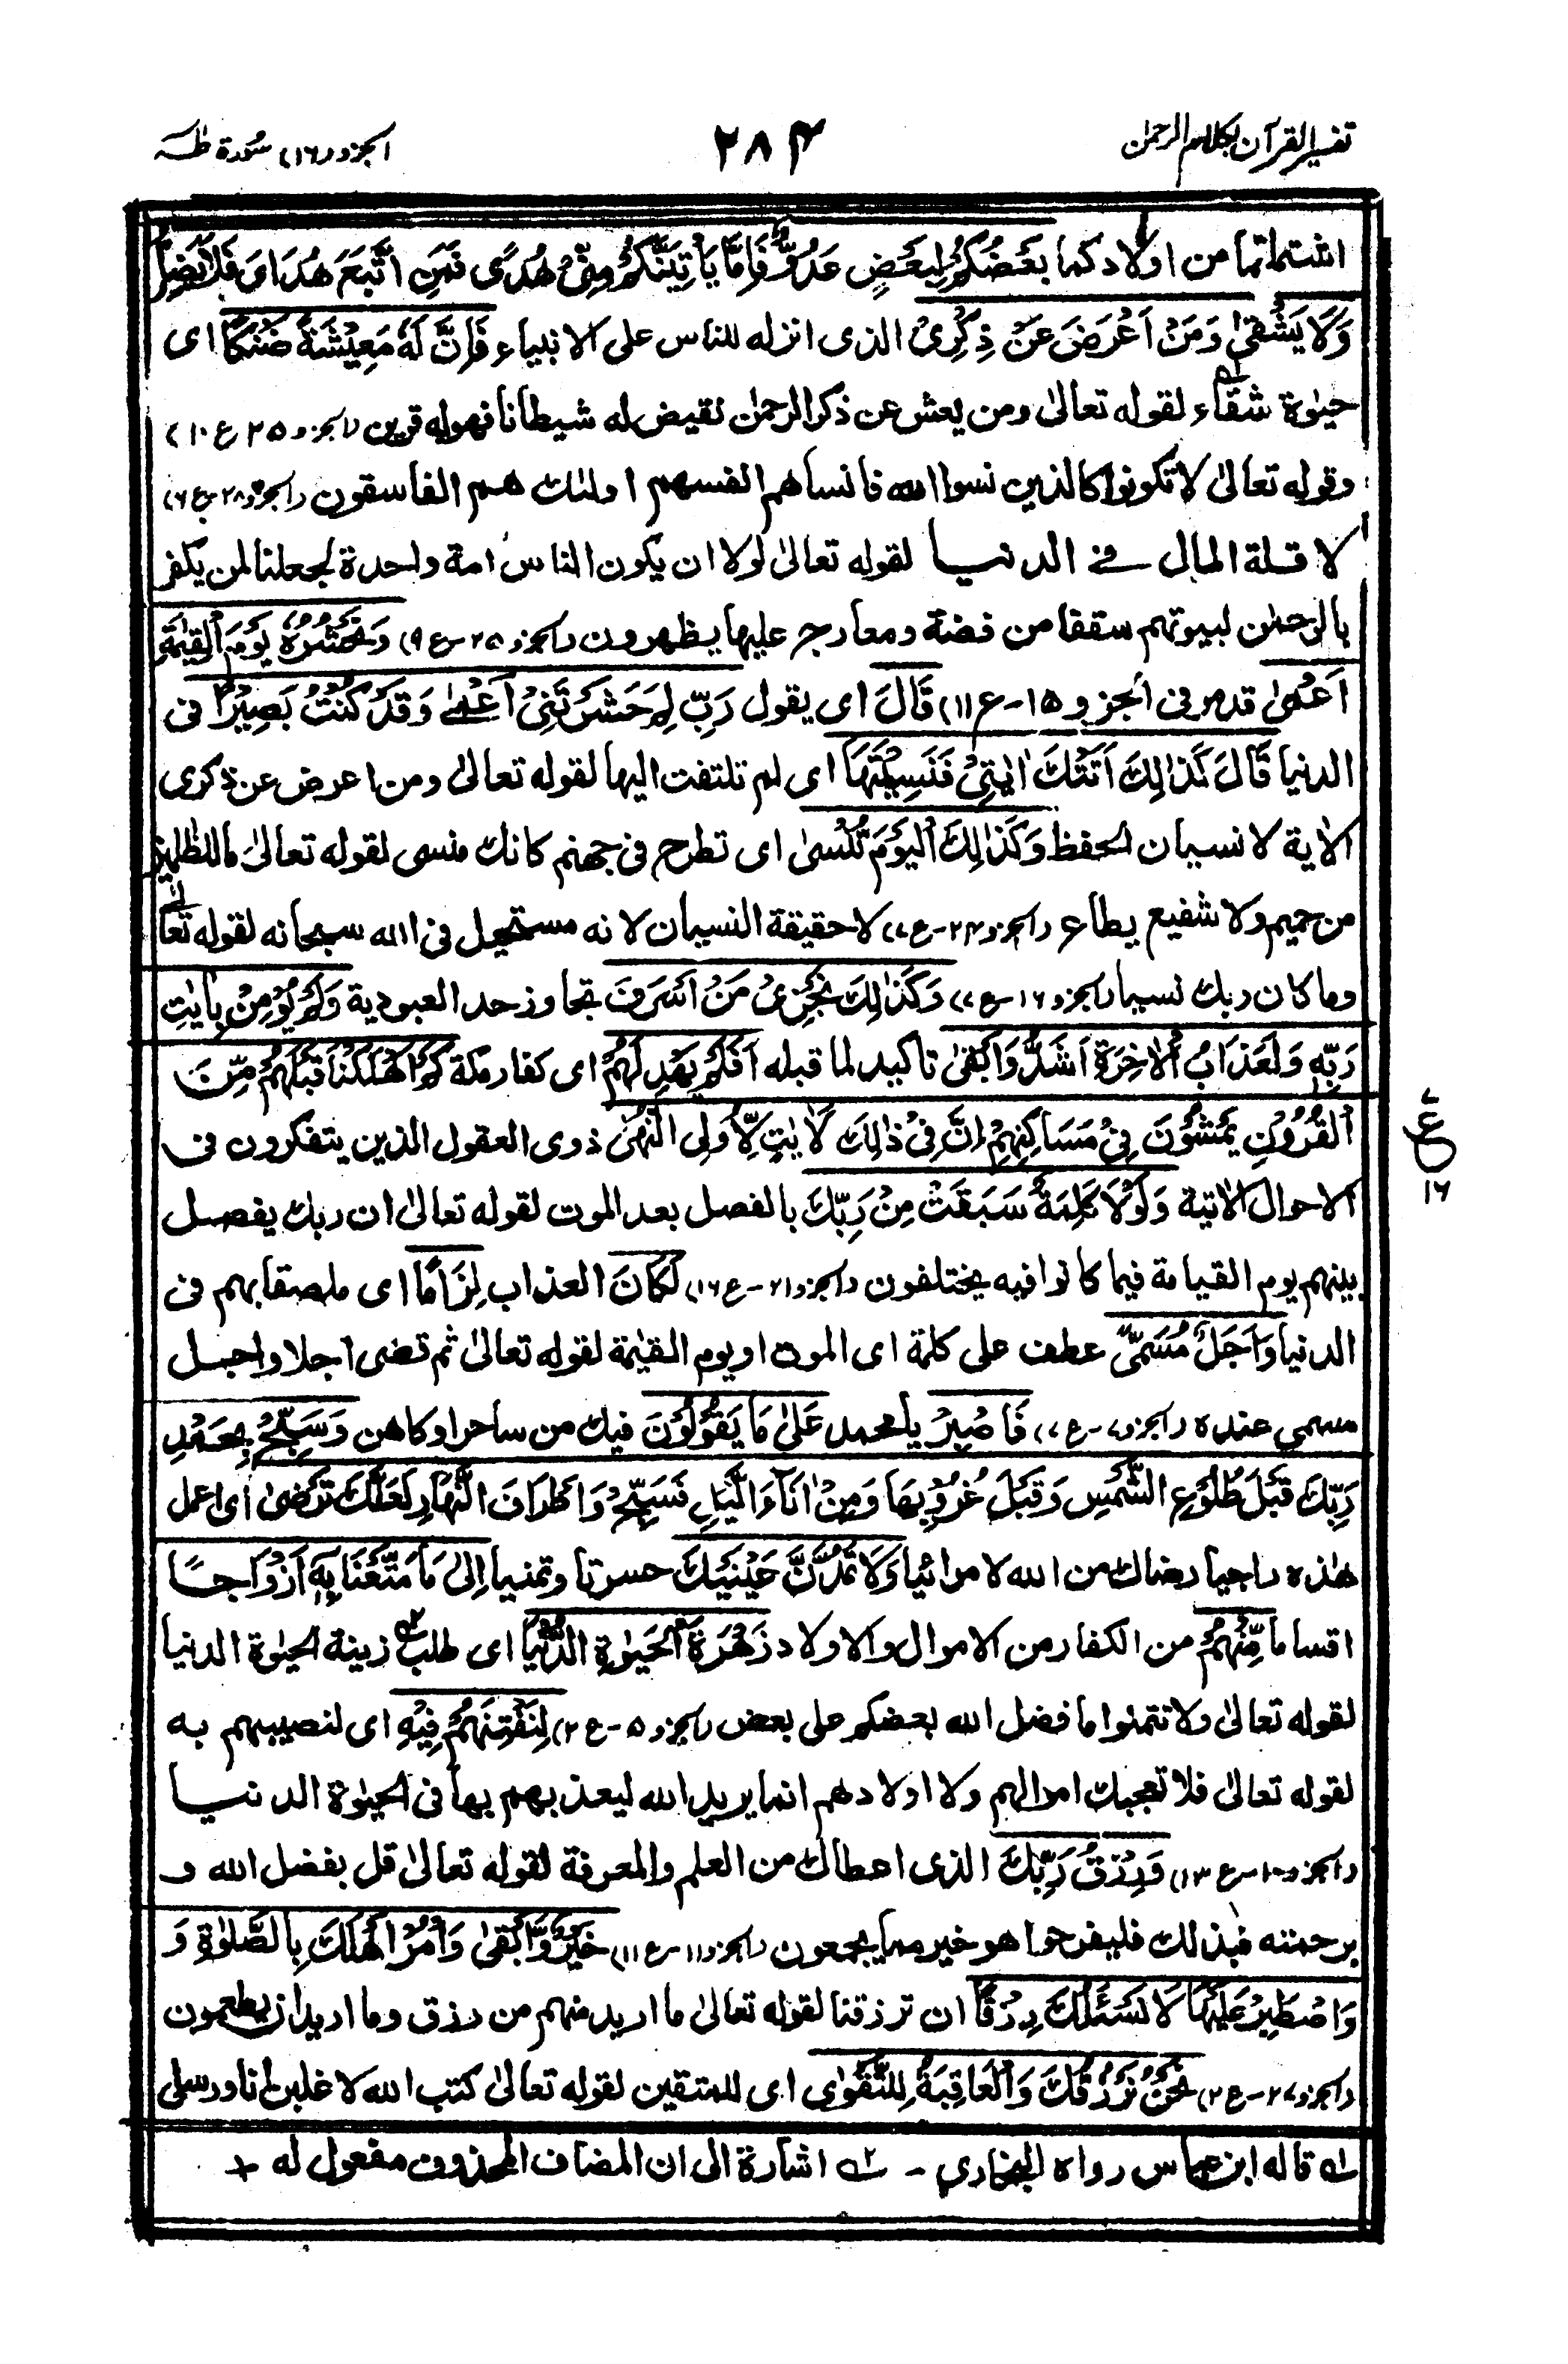 تفسير القرآن بكلام الرحمٰن
٢٨٤
الجزو (١٦) سُورة طٰهٰ
اشتملتما من اولادكما بَعْضُكُمْ لِبَعْضٍ عَدُوٌّ فَاِمَّا يَاْتِيَنَّكُمْ مِنِّىْ هُدًى فَمَنِ اتَّبَعَ هُدَاىَ فَلَا يَضِلُّ
وَلَا يَشْقٰى وَمَنْ اَعْرَضَ عَنْ ذِكْرِىْ الذى انزله للناس على الانبياء فَاِنَّ لَهٗ مَعِيْشَةً ضَنْكًا اى
حيٰوة شقاء لقوله تعالىٰ ومن يعش عن ذكر الرحمٰن نقيض له شيطانا فهو له قرين (الجزو ٢٥ ع ١٠)
وقوله تعالىٰ لا تكونوا كالذين نسوا الله فانساهم انفسهم اولئك هم الفاسقون (الجزو ٢٨ - ع ٦)
لا قلة المال فى الدنيا لقوله تعالىٰ لولا ان يكون الناس امة واحدة لجعلنا لمن يكفر
بالرحمٰن لبيوتهم سقفا من فضة ومعارج عليها يظهرون (الجزو ٢٥ - ع ٩) وَنَحْشُرُهٗ يَوْمَ الْقِيٰمَةِ
اَعْمٰى قد مر فى الجزو ١٥ - ع ١١) قَالَ اى يقول رَبِّ لِمَ حَشَرْتَنِىْ اَعْمٰى وَقَدْ كُنْتُ بَصِيْرًا فى
الدنيا قَالَ كَذٰلِكَ اَتَتْكَ اٰيٰتِىْ فَنَسِيْتَهَا اى لم تلتفت اليها لقوله تعالىٰ ومن اعرض عن ذكرى
الاٰية لا نسيان الحفظ وَكَذٰلِكَ الْيَوْمَ تُنْسٰى اى تطرح فى جهنم كانك منسى لقوله تعالىٰ ما للظٰلمين
من حميم ولا شفيع يطاع (الجزو ٢٤ - ع ٧) لا حقيقة النسيان لانه مستحيل فى الله سبحانه لقوله تعالىٰ
وما كان ربك نسيا (الجزو ١٦ - ع ٧) وَكَذٰلِكَ نَجْزِىْ مَنْ اَسْرَفَ تجاوز حد العبودية وَلَمْ يُؤْمِنْ بِاٰيٰتِ
رَبِّهٖ وَلَعَذَابُ الْاٰخِرَةِ اَشَدُّ وَاَبْقٰى تاكيد لما قبله اَفَلَمْ يَهْدِ لَهُمْ اى كفار مكة كَمْ اَهْلَكْنَا قَبْلَهُمْ مِّنَ
الْقُرُوْنِ يَمْشُوْنَ فِىْ مَسَاكِنِهِمْ اِنَّ فِىْ ذٰلِكَ لَاٰيٰتٍ لِّاُولِى النُّهٰى ذوى العقول الذين يتفكرون فى
ع ١٦
الاحوال الاٰتية وَلَوْلَا كَلِمَةٌ سَبَقَتْ مِنْ رَبِّكَ بالفصل بعد الموت لقوله تعالىٰ ان ربك يفصل
بينهم يوم القيامة فيما كانوا فيه يختلفون (الجزو ٢١ - ع ١٦) لَكَانَ العذاب لِزَامًا اى ملصقا بهم فى
الدنيا وَاَجَلٌ مُّسَمًّى عطف على كلمة اى الموت او يوم القيٰمة لقوله تعالىٰ ثم قضى اجلا واجل
مسمى عنده (الجزو ٧ - ع ٧) فَاصْبِرْ يا محمد عَلٰى مَا يَقُوْلُوْنَ فيك من ساحر او كاهن وَسَبِّحْ بِحَمْدِ
رَبِّكَ قَبْلَ طُلُوْعِ الشَّمْسِ وَقَبْلَ غُرُوْبِهَا وَمِنْ اٰنَآءِ الَّيْلِ فَسَبِّحْ وَاَطْرَافَ النَّهَارِ لَعَلَّكَ تَرْضٰى اى اعمل
هٰذه راجيا رضاك من الله لا مرائيا وَلَا تَمُدَّنَّ عَيْنَيْكَ حسرتا وتمنيا اِلٰى مَا مَتَّعْنَا بِهٖ اَزْوَاجًا
اقساما مِّنْهُمْ من الكفار من الاموال والاولاد زَهْرَةَ الْحَيٰوةِ الدُّنْيَا اى طلب زينة الحيٰوة الدنيا
لقوله تعالىٰ ولا تتمنوا ما فضل الله بعضكم على بعض (الجزو ٥ - ع ٢) لِنَفْتِنَهُمْ فِيْهِ اى لنصيبهم به
لقوله تعالىٰ فلا تعجبك اموالهم ولا اولادهم انما يريد الله ليعذبهم بها فى الحيٰوة الدنيا
(الجزو ١٠ - ع ١٣) وَرِزْقُ رَبِّكَ الذى اعطاك من العلم والمعرفة لقوله تعالىٰ قل بفضل الله و
برحمته فبذلك فليفرحوا هو خير مما يجمعون (الجزو ١١ - ع ١١) خَيْرٌ وَّاَبْقٰى وَاْمُرْ اَهْلَكَ بِالصَّلٰوةِ وَ
وَاصْطَبِرْ عَلَيْهَا لَا نَسْئَلُكَ رِزْقًا ان ترزقنا لقوله تعالىٰ ما اريد منهم من رزق وما اريد ان يطعمون
(الجزو ٢٧ - ع ٢) نَحْنُ نَرْزُقُكَ وَالْعَاقِبَةُ لِلتَّقْوٰى اى للمتقين لقوله تعالىٰ كتب الله لاغلبن انا ورسلى
١ قاله ابن عباس رواه البخارى - ٢ اشارة الى ان المضاف المحذوف مفعول له +